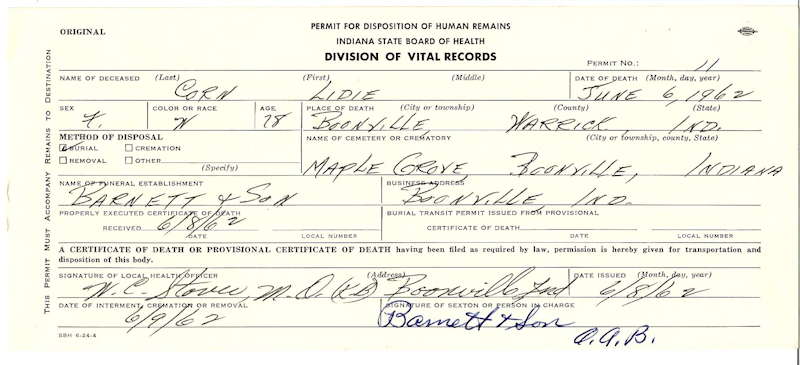 ORIGINAL
PERMIT FOR DISPOSITION OF HUMAN REMAINS
INDIANA STATE BOARD OF HEALTH
DIVISION OF VITAL RECORDS
PERMIT NO.: 11
THIS PERMIT MUST ACCOMPANY REMAINS TO DESTINATION
NAME OF DECEASED (Last) (First) (Middle) DATE OF DEATH (Month, day, year)
CORN LIDIE JUNE 6, 1962
SEX COLOR OR RACE AGE PLACE OF DEATH (City or township) (County) (State)
F. W 78 BOONVILLE, WARRICK, IND.
METHOD OF DISPOSAL NAME OF CEMETERY OR CREMATORY (City or township, county, State)
BURIAL CREMATION
REMOVAL OTHER
(Specify)
MAPLE GROVE, BOONVILLE, INDIANA
NAME OF FUNERAL ESTABLISHMENT BUSINESS ADDRESS
BARNETT & SON BOONVILLE, IND.
PROPERLY EXECUTED CERTIFICATE OF DEATH BURIAL TRANSIT PERMIT ISSUED FROM PROVISIONAL
RECEIVED 6/8/62 CERTIFICATE OF DEATH
DATE LOCAL NUMBER DATE LOCAL NUMBER
A CERTIFICATE OF DEATH OR PROVISIONAL CERTIFICATE OF DEATH having been filed as required by law, permission is hereby given for transportation and
disposition of this body.
SIGNATURE OF LOCAL HEALTH OFFICER (Address) DATE ISSUED (Month, day, year)
W.C. Stover, M.D. Boonville, Ind 6/8/62
DATE OF INTERMENT, CREMATION OR REMOVAL SIGNATURE OF SEXTON OR PERSON IN CHARGE
6/9/62 Barnett & Son
O.A.B.
SBH 6-24-4